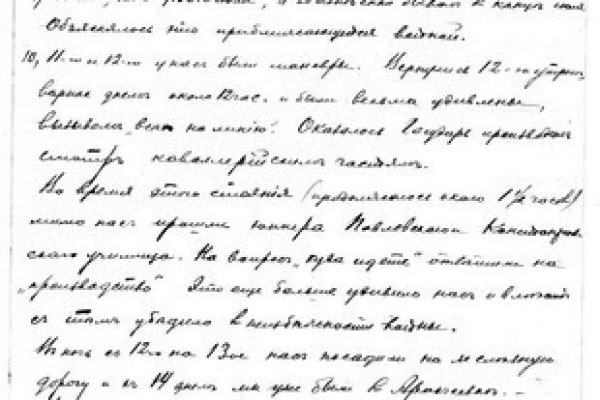 Объяснялось это приближающейся войной.
10, 11-го и 12-го у нас были маневры. Вернулись 12-го утром,
вернее днем около 12 час. и были весьма удивлены,
вызовом „всех на линию“. Оказалось Государь производит
смотр кавалерийским частям.
Во время этого стояния (продолжалось около 1½ часов)
мимо нас прошли юнкера Павловского
ского училища. На вопрос „куда идете“ ответили на
„производство“. Это еще больше удивило нас и
с тем убедило в неизбежности войны.
В ночь с 12-го на 13-ое нас посадили на железную
дорогу и с 14 днем мы уже были в